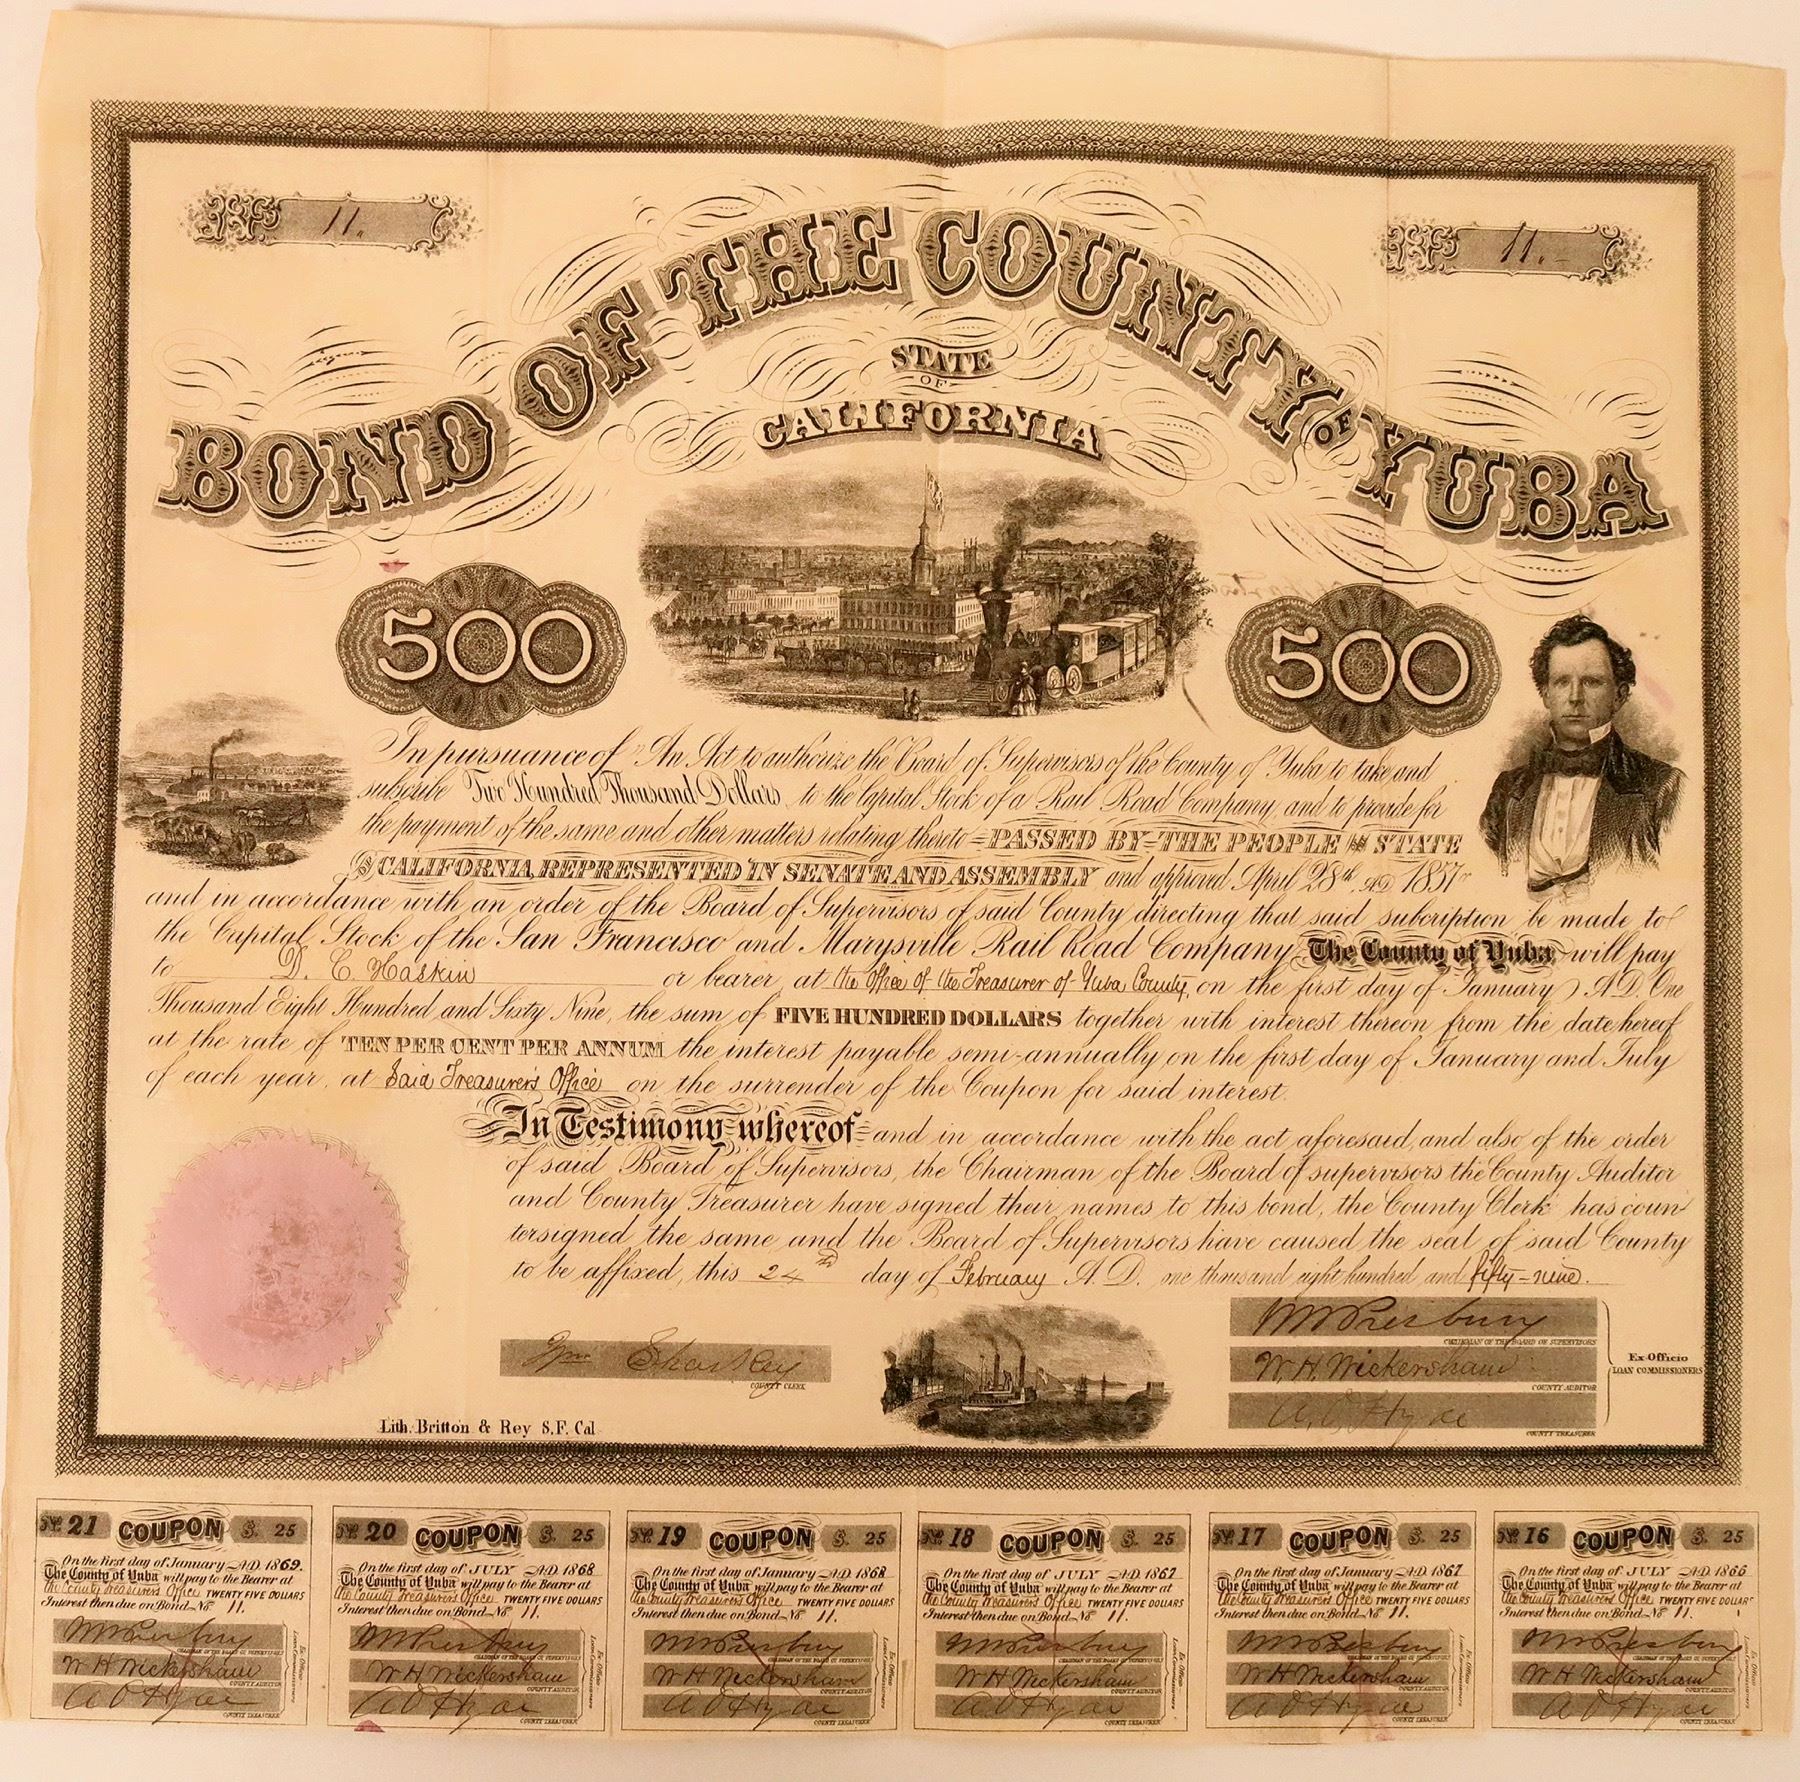 No 11.
No 11.
BOND OF THE COUNTY OF YUBA
STATE
OF
CALIFORNIA
500
500
In pursuance of "An Act to authorize the Board of Supervisors of the County of Yuba to take and
subscribe Two Hundred Thousand Dollars to the Capital Stock of a Rail Road Company, and to provide for
the payment of the same and other matters relating thereto" PASSED BY THE PEOPLE OF THE STATE
OF CALIFORNIA, REPRESENTED IN SENATE AND ASSEMBLY and approved April 28th, AD 1857
and in accordance with an order of the Board of Supervisors of said County directing that said subcription be made to
the Capital Stock of the San Francisco and Marysville Rail Road Company The County of Yuba will pay
to D. C. Haskin or bearer, at the office of the Treasurer of Yuba County, on the first day of January A.D. One
Thousand Eight Hundred and Sixty Nine, the sum of FIVE HUNDRED DOLLARS together with interest thereon from the date hereof
at the rate of TEN PER CENT PER ANNUM the interest payable semi-annually on the first day of January and July
of each year, at Said Treasurer's Office on the surrender of the Coupon for said interest.
In Testimony whereof and in accordance with the act aforesaid, and also of the order
of said Board of Supervisors, the Chairman of the Board of supervisors the County Auditor
and County Treasurer have signed their names to this bond, the County Clerk has coun
tersigned the same and the Board of Supervisors have caused the seal of said County
to be affixed, this 24th day of February A. D. one thousand eight hundred and fifty-nine.
Wm Sharkey
COUNTY CLERK
CHAIRMAN OF THE BOARD OF SUPERVISORS
W. H. Wickersham
COUNTY AUDITOR
A. O. Hyde
COUNTY TREASURER
Ex-Officio
LOAN COMMISSIONERS
Lith. Britton & Rey S.F. Cal
No. 21 COUPON $. 25
On the first day of January A.D. 1869.
The County of Yuba will pay to the Bearer at
the County Treasurers Office TWENTY FIVE DOLLARS
Interest then due on Bond No 11.
W H Wickersham
COUNTY AUDITOR
A O Hyde
COUNTY TREASURER
No. 20 COUPON $. 25
On the first day of JULY A.D. 1868
The County of Yuba will pay to the Bearer at
the County Treasurers Office TWENTY FIVE DOLLARS
Interest then due on Bond No 11.
W H Wickersham
COUNTY AUDITOR
A O Hyde
COUNTY TREASURER
No. 19 COUPON $. 25
On the first day of January A.D. 1868
The County of Yuba will pay to the Bearer at
the County Treasurers Office TWENTY FIVE DOLLARS
Interest then due on Bond No 11.
W H Wickersham
COUNTY AUDITOR
A O Hyde
COUNTY TREASURER
No. 18 COUPON $. 25
On the first day of JULY A.D. 1867
The County of Yuba will pay to the Bearer at
the County Treasurers Office TWENTY FIVE DOLLARS
Interest then due on Bond No 11.
W H Wickersham
COUNTY AUDITOR
A O Hyde
COUNTY TREASURER
No. 17 COUPON $. 25
On the first day of January A.D. 1867
The County of Yuba will pay to the Bearer at
the County Treasurers Office TWENTY FIVE DOLLARS
Interest then due on Bond No 11.
W H Wickersham
COUNTY AUDITOR
A O Hyde
COUNTY TREASURER
No. 16 COUPON $. 25
On the first day of JULY A.D. 1866
The County of Yuba will pay to the Bearer at
the County Treasurers Office TWENTY FIVE DOLLARS
Interest then due on Bond No 11.
W H Wickersham
COUNTY AUDITOR
A O Hyde
COUNTY TREASURER